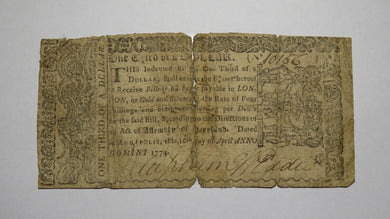 ONE THIRD OF A DOLLAR
One Third of a DOLLAR. No 10156
THIS Indented Bill of One Third of a
DOLLAR, shall entitle the Bearer hereof
to Receive Bills of Exchange payable in LON-
DON, or Gold and Silver, at the Rate of Four
Shillings and Sixpence Sterling per Dollar
for the said Bill, according to the Directions of
an Act of Assembly of Maryland. Dated
in ANNAPOLIS, this 10th Day of April ANNO
DOMINI 1774.